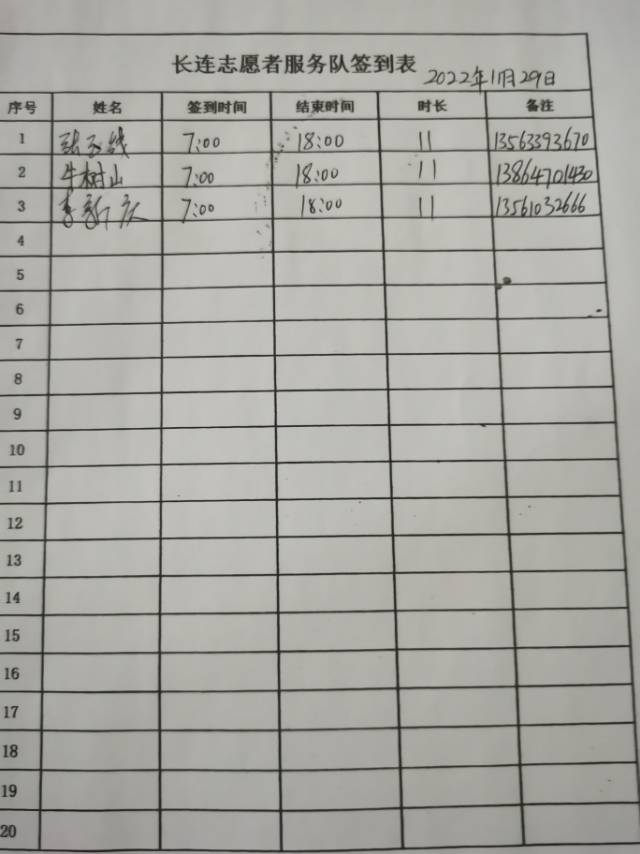 长连志愿者服务队签到表
2022年11月29日
序号 姓名 签到时间 结束时间 时长 备注
1 张玉钱 7:00 18:00 11 13563393670
2 牛树山 7:00 18:00 11 13864701430
3 李新庆 7:00 18:00 11 13561032666
4
5
6
7
8
9
10
11
12
13
14
15
16
17
18
19
20